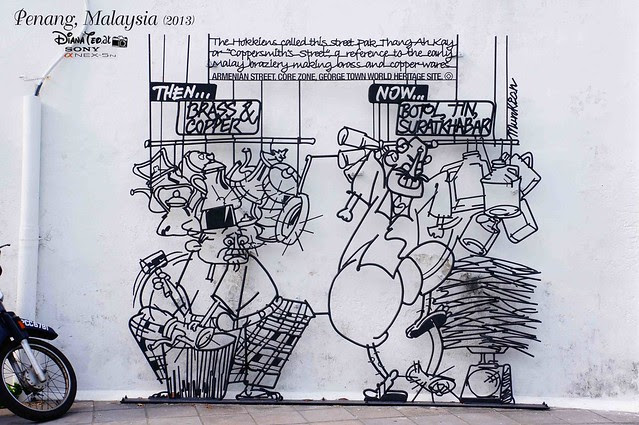 Penang, Malaysia (2013)
Diana Teo.al
SONY
αNEX-5N
The Hokkiens called this street Pak Thang Ah Kay
or "Coppersmith's Street", a reference to the early
Malay braziery making brass and copper wares
ARMENIAN STREET, CORE ZONE, GEORGE TOWN WORLD HERITAGE SITE. ©
THEN...
BRASS &
COPPER
NOW...
BOTOL, TIN,
SURATKHABAR